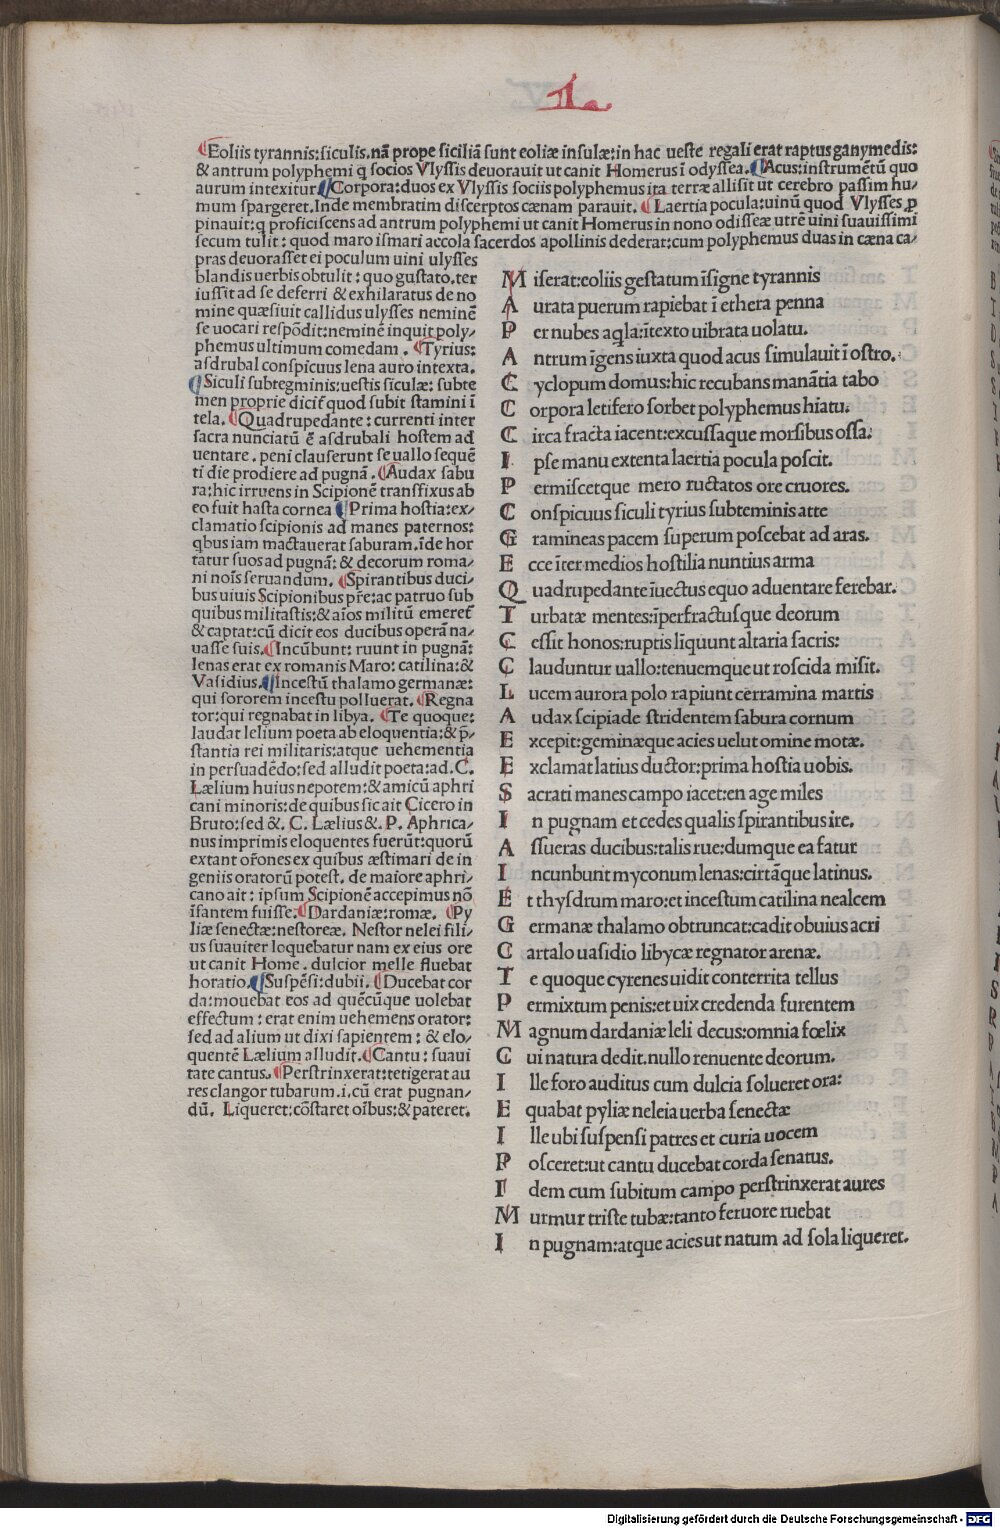 L
¶Eoliis tyrannis:ſiculis.nā prope ſiciliā ſunt eoliæ inſulæ:in hac ueſte regali erat raptus ganymedis:
& antrum polyphemi q̄ ſocios Vlyſſis deuorauit ut canit Homerus ī odyſſea.¶Acus:inſtrumētū quo
aurum intexitur.¶Corpora:duos ex Vlyſſis ſociis polyphemus ita terræ alliſit ut cerebro paſſim hu⸗
mum ſpargeret.Inde membratim diſcerptos cænam parauit.¶Laertia pocula:uinū quod Vlyſſes ꝓ
pinauit:q proficiſcens ad antrum polyphemi ut canit Homerus in nono odiſſeæ utrē uini ſuauiſſimi
ſecum tulit: quod maro iſmari accola ſacerdos apollinis dederat:cum polyphemus duas in cæna ca⸗
pras deuoraſſet ei poculum uini ulyſſes
blandis uerbis obtulit: quo guſtato.ter
iuſſit ad ſe deferri & exhilaratus de no
mine quæſiuit callidus ulyſſes neminē
ſe uocari reſpōdit:neminē inquit poly⸗
phemus ultimum comedam.¶Tyrius:
aſdrubal conſpicuus lena auro intexta.
¶Siculi ſubtegminis:ueſtis ſiculæ: ſubte
men proprie dicit̄ quod ſubit ſtamini ī
tela.¶Quadrupedante: currenti inter
ſacra nunciatū ē aſdrubali hoſtem ad
uentare. peni clauſerunt ſe uallo ſequē
ti die prodiere ad pugnā.¶Audax ſabu
ra:hic irruens in Scipionē tranſfixus ab
eo fuit haſta cornea ¶Prima hoſtia:ex⸗
clamatio ſcipionis ad manes paternos:
qbus iam mactauerat ſaburam.īde hor
tatur ſuos ad pugnā: & decorum roma⸗
ni noīs ſeruandum.¶Spirantibus duci⸗
bus uiuis Scipionibus pr̄e:ac patruo ſub
quibus militaſtis:& aīos militū emeret̄
& captat:cū dicit eos ducibus operā na⸗
uaſſe ſuis.¶Incūbunt: ruunt in pugnā:
lenas erat ex romanis Maro: catilina:&
Vaſidius.¶Inceſtū thalamo germanæ:
qui ſororem inceſtu polluerat.¶Regna
tor:qui regnabat in libya.¶Te quoque:
laudat lelium poeta ab eloquentia:& p̄⸗
ſtantia rei militaris:atque uehementia
in perſuadēdo:ſed alludit poeta:ad.C.
Lælium huius nepotem:& amicū aphri
cani minoris:de quibus ſic ait Cicero in
Bruto:ſed &. C. Lælius &. P. Aphrica⸗
nus imprimis eloquentes fuerūt:quorū
extant or̄ones ex quibus æſtimari de in
geniis oratorū poteſt. de maiore aphri⸗
cano ait: ipſum Scipionē accepimus nō
īfantem fuiſſe:¶Dardaniæ:romæ.¶Py
liæ ſenectæ:neſtoreæ. Neſtor nelei fili⸗
us ſuauiter loquebatur nam ex eius ore
ut canit Home. dulcior melle fluebat
horatio.¶Suſpēſi:dubii.¶Ducebat cor
da:mouebat eos ad quēcūque uolebat
effectum: erat enim uehemens orator:
ſed ad alium ut dixi ſapientem: & elo⸗
quentē Lælium alludit.¶Cantu: ſuaui
tate cantus.¶Perſtrinxerat:tetigerat au
res clangor tubarum.i.cū erat pugnan⸗
dū. Liqueret:cōſtaret oībus:& pateret.
M iſerat:eoliis geſtatum īſigne tyrannis
A urata puerum rapiebat ī ethera penna
P er nubes aqla:ītexto uibrata uolatu.
A ntrum īgens iuxta quod acus ſimulauit ī oſtro.
C yclopum domus:hic recubans manātia tabo
C orpora letifero ſorbet polyphemus hiatu.
C irca fracta iacent:excuſſaque morſibus oſſa:
I pſe manu extenta laertia pocula poſcit.
P ermiſcetque mero ructatos ore cruores.
C onſpicuus ſiculi tyrius ſubteminis atte
G ramineas pacem ſuperum poſcebat ad aras.
E cce īter medios hoſtilia nuntius arma
Q uadrupedante īuectus equo aduentare ferebar.
T urbatæ mentes:īperfractuſque deorum
C eſſit honos:ruptis liquunt altaria ſacris:
C lauduntur uallo:tenuemque ut roſcida miſit.
L ucem aurora polo rapiunt cerramina martis
A udax ſcipiade ſtridentem ſabura cornum
E xcepit:geminæque acies uelut omine motæ.
E xclamat latius ductor:prima hoſtia uobis.
S acrati manes campo iacet:en age miles
I n pugnam et cedes qualis ſpirantibus ire.
A ſſueras ducibus:talis rue:dumque ea fatur
I ncunbunt myconum lenas:cirtāque latinus.
E t thyſdrum maro:et inceſtum catilina nealcem
G ermanæ thalamo obtruncat:cadit obuius acri
C artalo uaſidio libycæ regnator arenæ.
T e quoque cyrenes uidit conterrita tellus
P ermixtum penis:et uix credenda furentem
M agnum dardaniæ leli decus:omnia fœlix
C ui natura dedit.nullo renuente deorum.
I lle foro auditus cum dulcia ſolueret ora:
E quabat pyliæ neleia uerba ſenectæ
I lle ubi ſuſpenſi patres et curia uocem
P oſceret:ut cantu ducebat corda ſenatus.
I dem cum ſubitum campo perſtrinxerat aures
M urmur triſte tubæ:tanto feruore ruebat
I n pugnam:atque acies ut natum ad ſola liqueret.
Digitalisierung gefördert durch die Deutsche Forschungsgemeinschaft - DFG